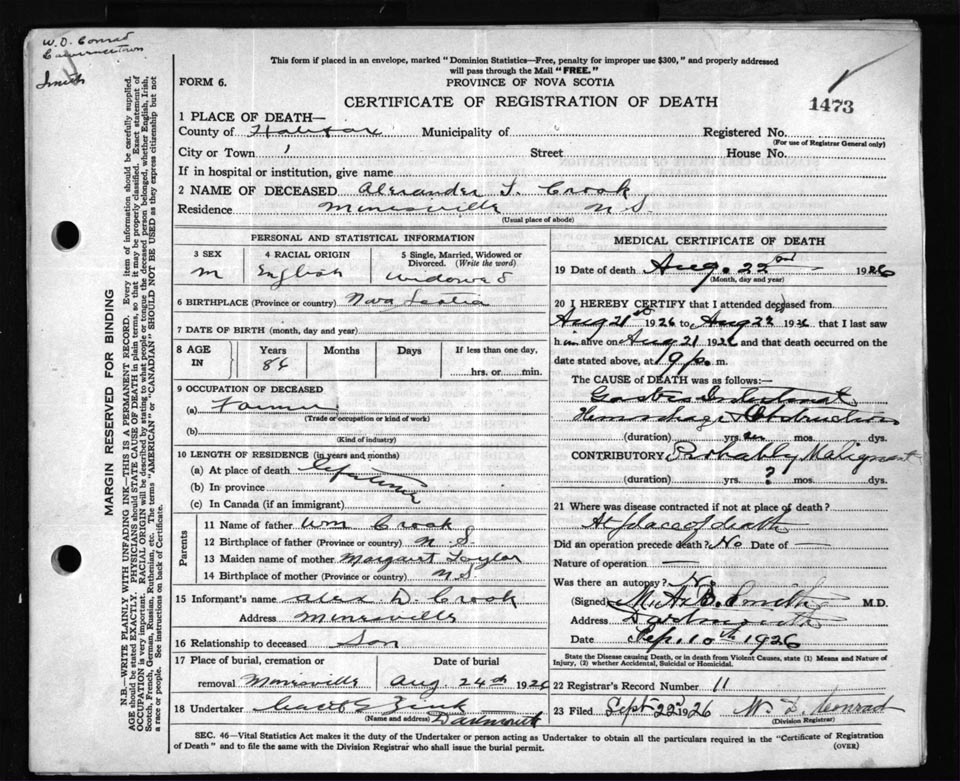 W. D. Conrad
Lawrencetown
Smith
This form if placed in an envelope, marked "Dominion Statistics—Free, penalty for improper use $300," and properly addressed
will pass through the Mail "FREE."
FORM 6.
PROVINCE OF NOVA SCOTIA
CERTIFICATE OF REGISTRATION OF DEATH
1473
1 PLACE OF DEATH—
County of Halifax Municipality of Registered No.
(For use of Registrar General only)
City or Town Street House No.
If in hospital or institution, give name
2 NAME OF DECEASED Alexander T. Crook
Residence Minesville N.S.
(Usual place of abode)
PERSONAL AND STATISTICAL INFORMATION
3 SEX 4 RACIAL ORIGIN 5 Single, Married, Widowed or Divorced. (Write the word)
M English Widowed
6 BIRTHPLACE (Province or country) Nova Scotia
7 DATE OF BIRTH (month, day and year)
8 AGE IN Years Months Days If less than one day,
86 hrs. or min.
9 OCCUPATION OF DECEASED
(a) Farmer
(Trade or occupation or kind of work)
(b)
(Kind of industry)
10 LENGTH OF RESIDENCE (in years and months)
(a) At place of death Lifetime
(b) In province
(c) In Canada (if an immigrant)
Parents
11 Name of father Wm Crook
12 Birthplace of father (Province or country) N.S.
13 Maiden name of mother Margaret Taylor
14 Birthplace of mother (Province or country) N.S.
15 Informant's name Alex D. Crook
Address Minesville
16 Relationship to deceased Son
17 Place of burial, cremation or Date of burial
removal Minesville Aug 24th 1926
18 Undertaker Zink
(Name and address) Dartmouth
MEDICAL CERTIFICATE OF DEATH
19 Date of death Aug. 22nd 1926
(Month, day and year)
20 I HEREBY CERTIFY that I attended deceased from
Aug 21st 1926 to Aug 22 1926 that I last saw
him alive on Aug 21 1926 and that death occurred on the
date stated above, at p. m.
The CAUSE of DEATH was as follows:—
Gastro Intestinal
Hemorrhage & Obstruction
(duration) yrs. mos. dys.
CONTRIBUTORY Probably Malignant
(duration) yrs. ? mos. dys.
21 Where was disease contracted if not at place of death?
At place of death
Did an operation precede death? No Date of —
Nature of operation —
Was there an autopsy? No
(Signed) Smith M.D.
Address Dartmouth
Date Sep. 10th 1926
State the Disease causing Death, or in death from Violent Causes, state (1) Means and Nature of
Injury, (2) whether Accidental, Suicidal or Homicidal.
22 Registrar's Record Number 11
23 Filed Sept 22nd 1926 W. D. Conrad
(Division Registrar)
SEC. 46—Vital Statistics Act makes it the duty of the Undertaker or person acting as Undertaker to obtain all the particulars required in the "Certificate of Registration
of Death" and to file the same with the Division Registrar who shall issue the burial permit.
(OVER)
MARGIN RESERVED FOR BINDING
N.B.—WRITE PLAINLY WITH UNFADING INK—THIS IS A PERMANENT RECORD. Every item of information should be carefully supplied.
AGE should be stated EXACTLY. PHYSICIANS should STATE CAUSE OF DEATH in plain terms, so that it may be properly classified. Exact statement of
OCCUPATION is very important. RACIAL ORIGIN will be described by stating to what people or tongue the deceased person belonged, whether English, Irish,
Scotch, French, German, Russian, Ruthenian, etc. The terms "AMERICAN" or "CANADIAN" SHOULD NOT BE USED as they express citizenship but not
a race or people. See instructions on back of Certificate.